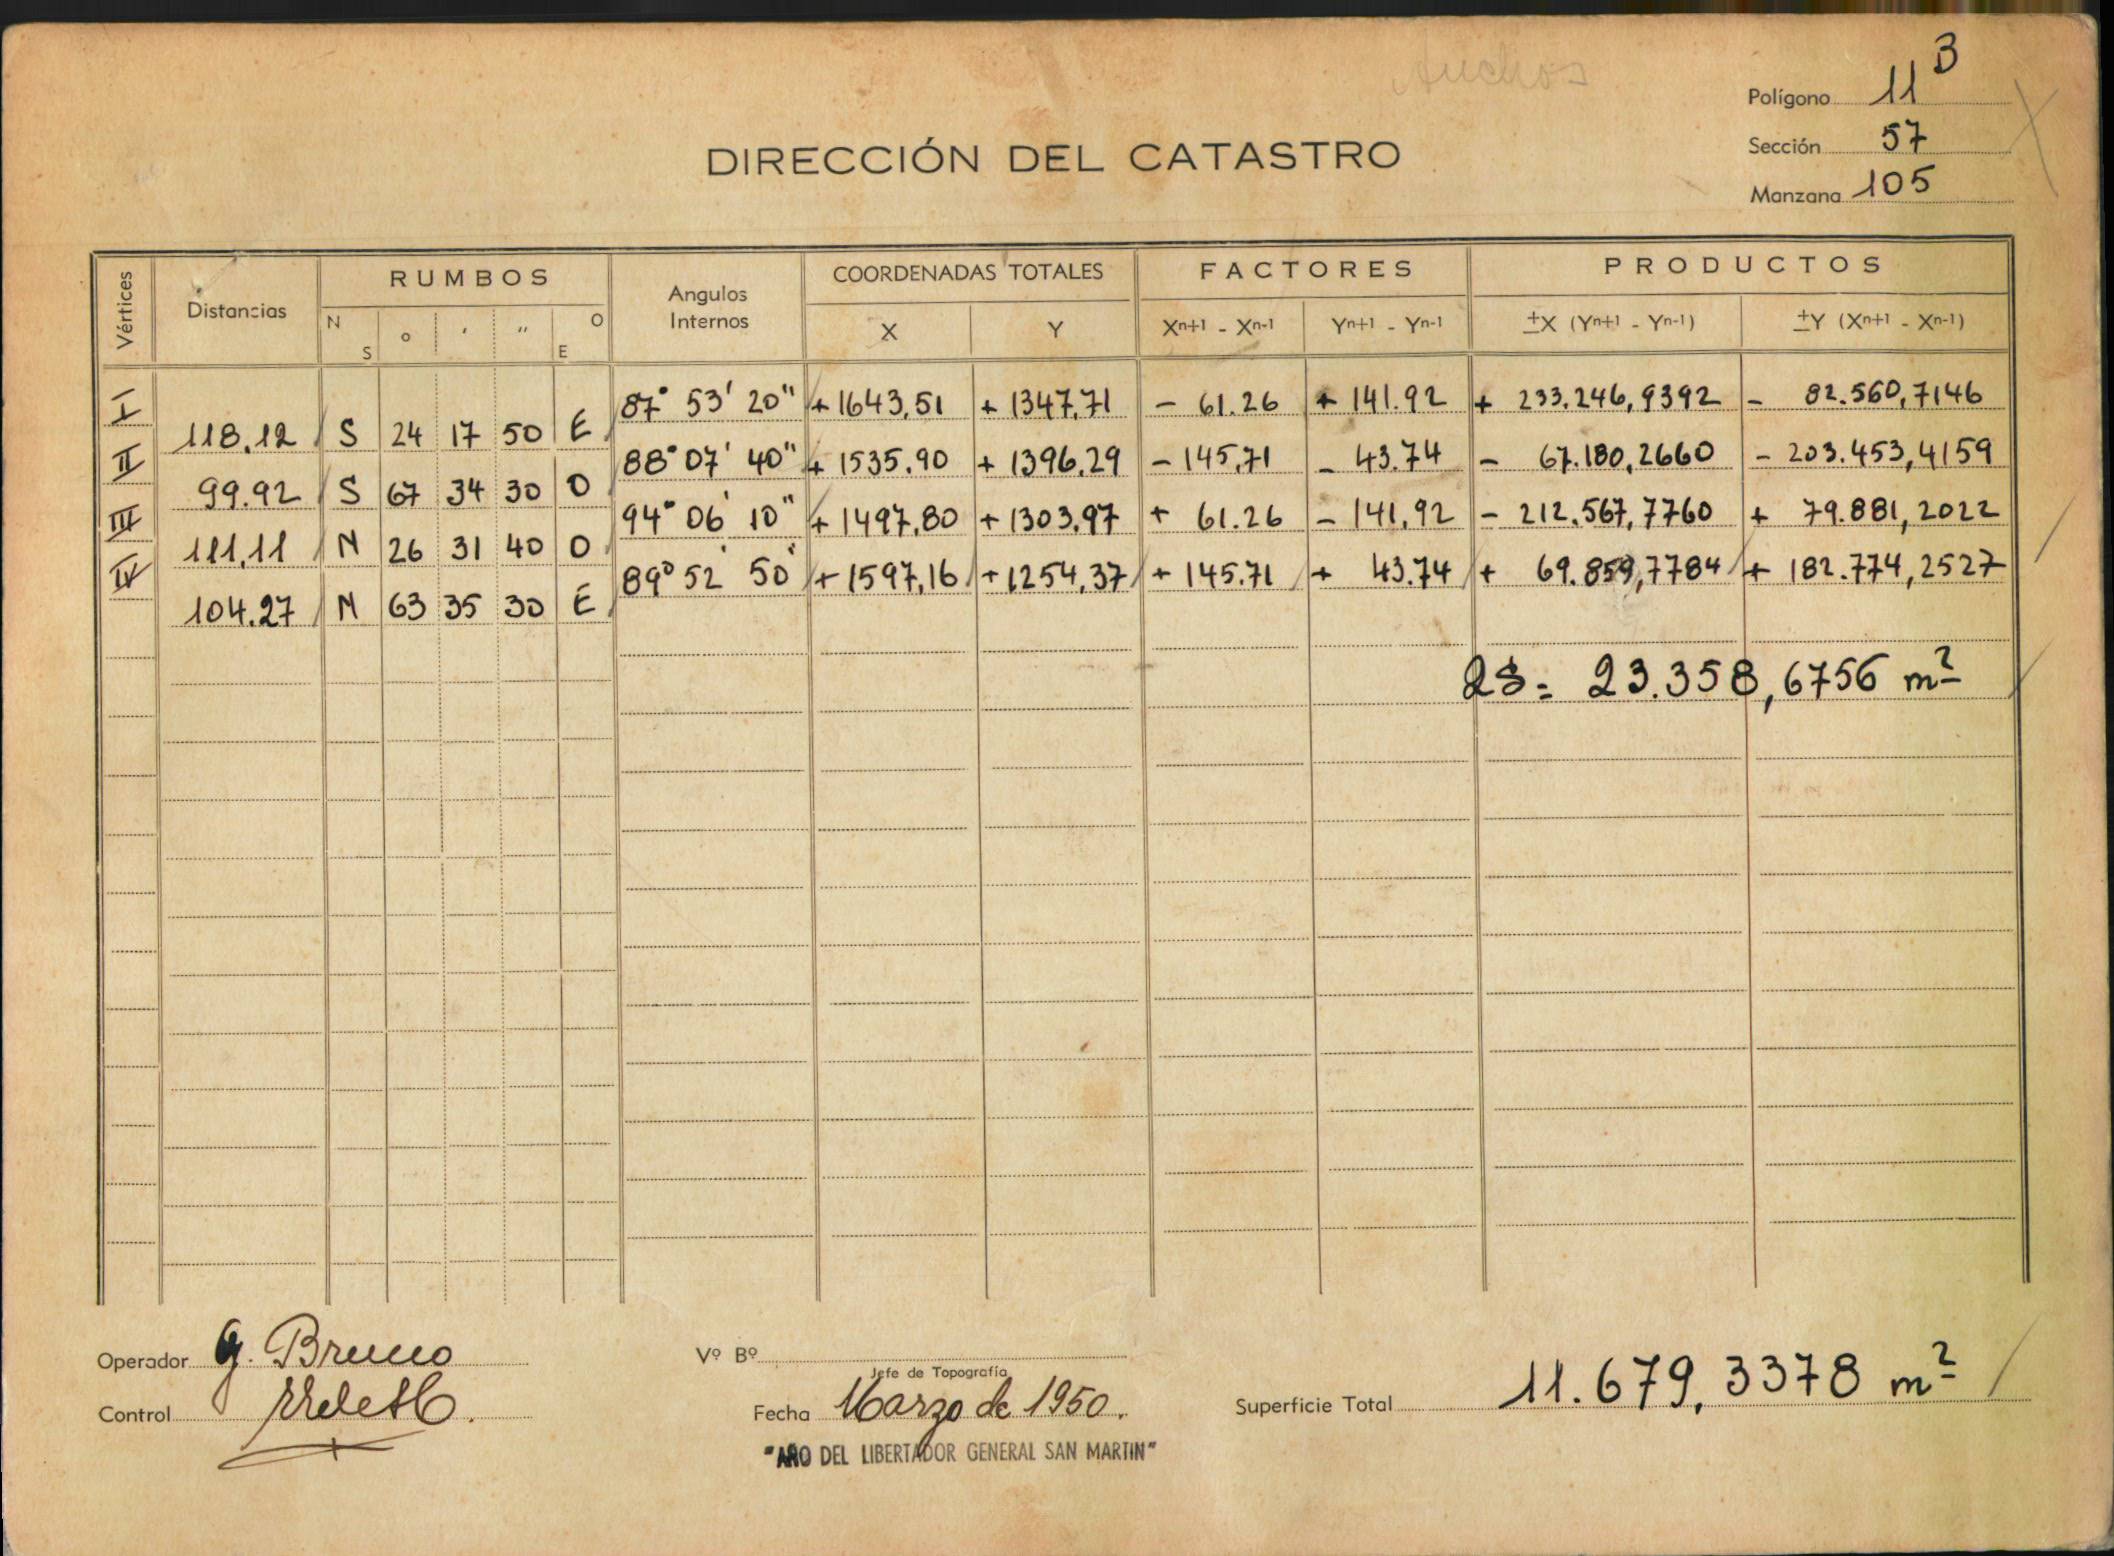 Anchos
Polígono 11 B
Sección 57
Manzana 105
DIRECCIÓN DEL CATASTRO
Vértices Distancias RUMBOS Angulos Internos COORDENADAS TOTALES FACTORES PRODUCTOS
N S ° ' '' O E X Y Xn+1 - Xn-1 Yn+1 - Yn-1 ±X (Yn+1 - Yn-1) ±Y (Xn+1 - Xn-1)
I 87° 53' 20" +1643,51 + 1347,71 - 61.26 + 141.92 + 233.246,9392 - 82.560,7146
118.12 S 24 17 50 E
II 88° 07' 40" + 1535.90 + 1396.29 - 145.71 - 43.74 - 67.180,2660 - 203.453,4159
99.92 S 67 34 30 O
III 94° 06' 10" + 1497,80 + 1303,97 + 61.26 - 141,92 - 212.567,7760 + 79.881,2022
111,11 N 26 31 40 O
IV 89° 52' 50" + 1597,16 + 1254,37 + 145.71 + 43.74 + 69.859,7784 + 182.774,2527
104.27 N 63 35 30 E
2S = 23.358,6756 m²
Operador G. Bruno
Vº Bº
Jefe de Topografía
Control
Fecha Marzo de 1950.
Superficie Total 11.679,3378 m²
"AÑO DEL LIBERTADOR GENERAL SAN MARTIN"